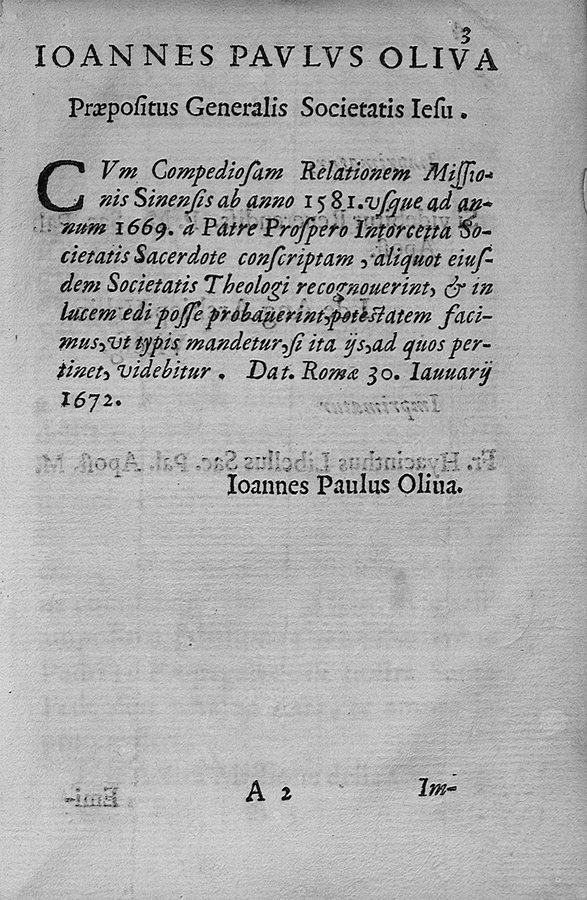 3
IOANNES PAVLVS OLIVA
Præpositus Generalis Societatis Iesu.
CVm Compediosam Relationem Missio-
nis Sinensis ab anno 1581. vsque ad an-
num 1669. a Patre Prospero Intorcetta So-
cietatis Sacerdote conscriptam, aliquot eius-
dem Societatis Theologi recognouerint, & in
lucem edi posse probauerint, potestatem faci-
mus, vt typis mandetur, si ita ijs, ad quos per-
tinet, videbitur. Dat. Romæ 30. Iauuarij
1672.
Imprimatur
Fr. Hyacinthus Libellus Sac. Pal. Apost. M.
Ioannes Paulus Oliua.
Emi-
A 2
Im-